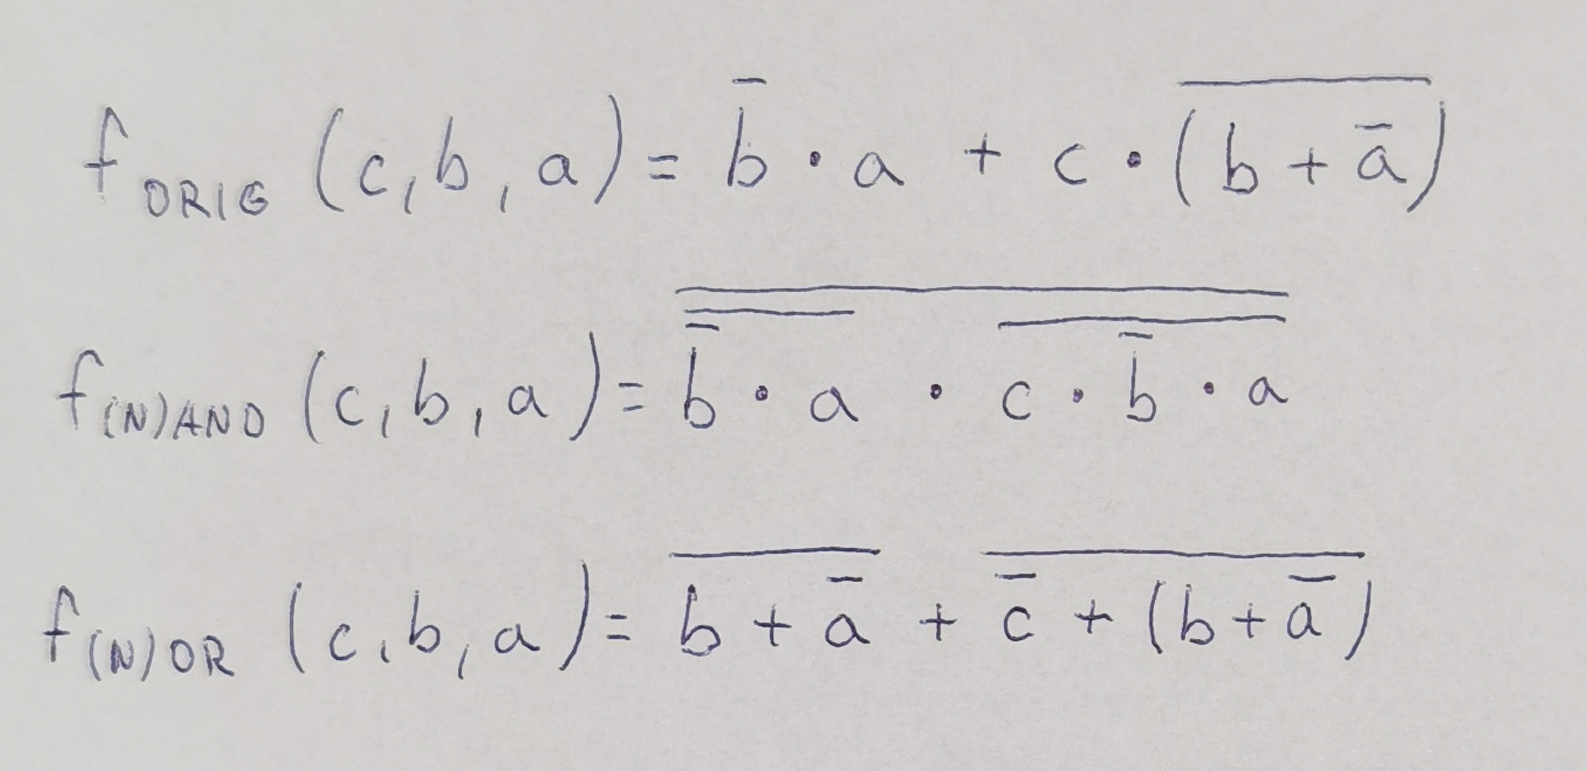 f_ORIG (c, b, a) = b̅ · a + c · \overline{(b + a̅)}
f_(N)AND (c, b, a) = \overline{\overline{b̅ · a} · \overline{c · b̅ · a}}
f_(N)OR (c, b, a) = \overline{b + a̅} + \overline{c̅ + (b + a̅)}